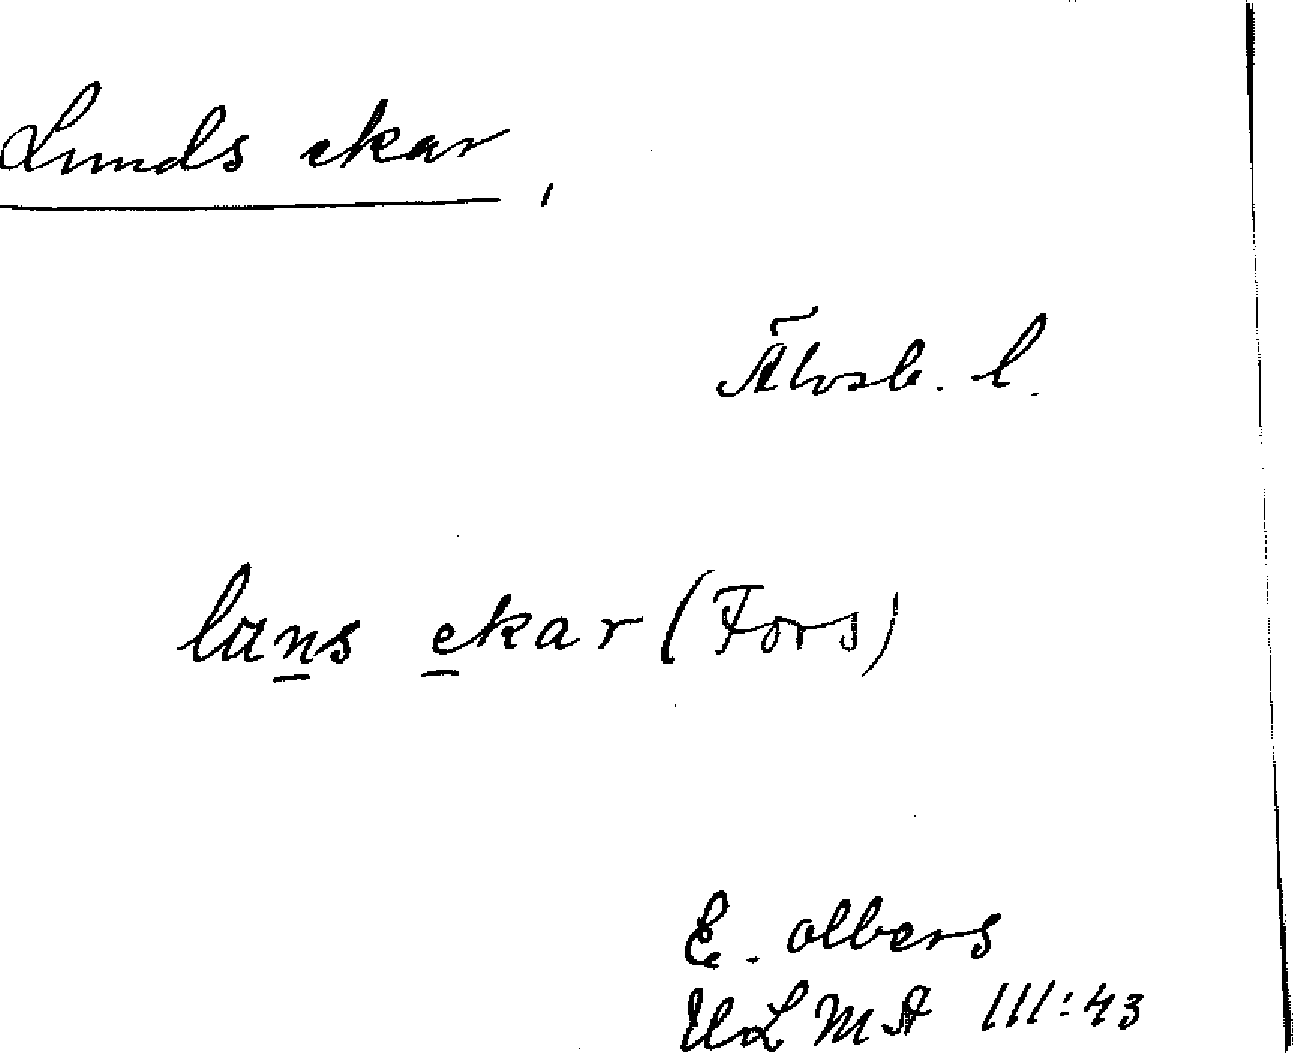 Lunds ekar,
Älvsb. l.
lans ekar (Fors)
E. Olbers
ULMA III:43